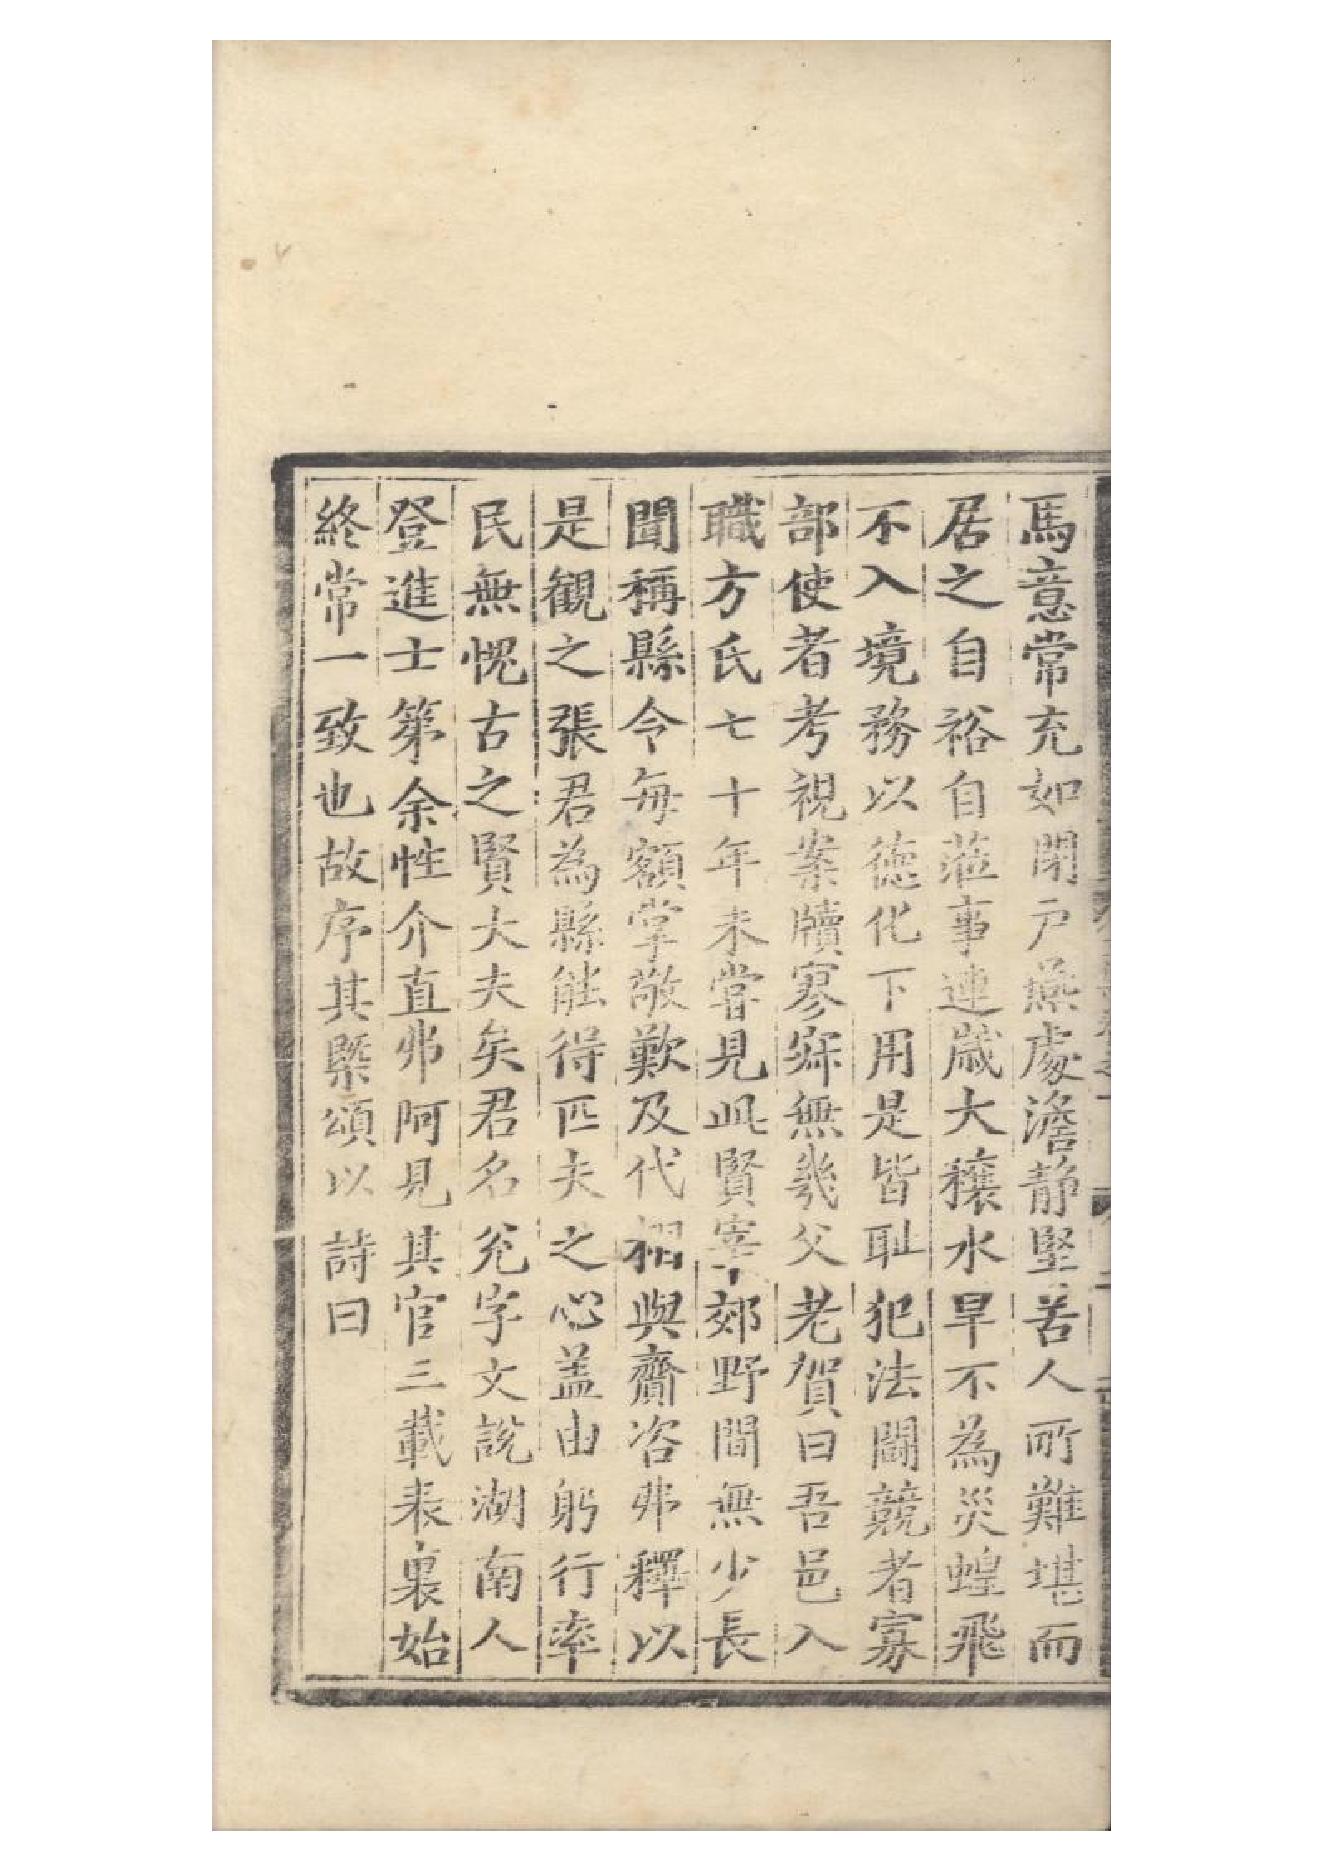 馬意常充如閉戸燕處澹静堅苦人所難堪而
居之自裕自蒞事連歲大穰水旱不為災蝗飛
不入境務以德化下用是皆耻犯法鬭競者寡
部使者考視案牘寥寂無幾父老賀曰吾邑入
職方氏七十年未嘗見此賢宰郊野間無少長
聞稱縣令每額掌敬歎及代相與齎咨弗釋以
是觀之張君為縣能得匹夫之心盖由躬行率
民無愧古之賢大夫矣君名兊字文說湖南人
登進士第余性介直弗阿見其官三載表裏始
終常一致也故序其槩頌以詩曰